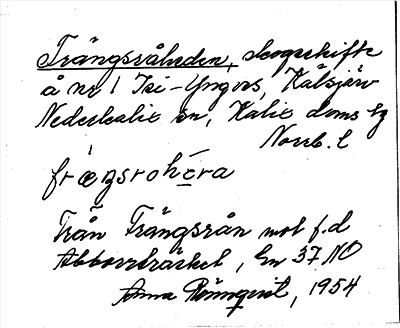 Trängsråheden, skogsskifte
å nr 1 Isi-Yngves, Kälsjärv
Nederkalix sn, Kalix doms lg
Norrb. l
frængsrohera
Från Trängsrån mot f.d
Abborrträsket, En 37 NO
Anna Rönnqvist, 1954